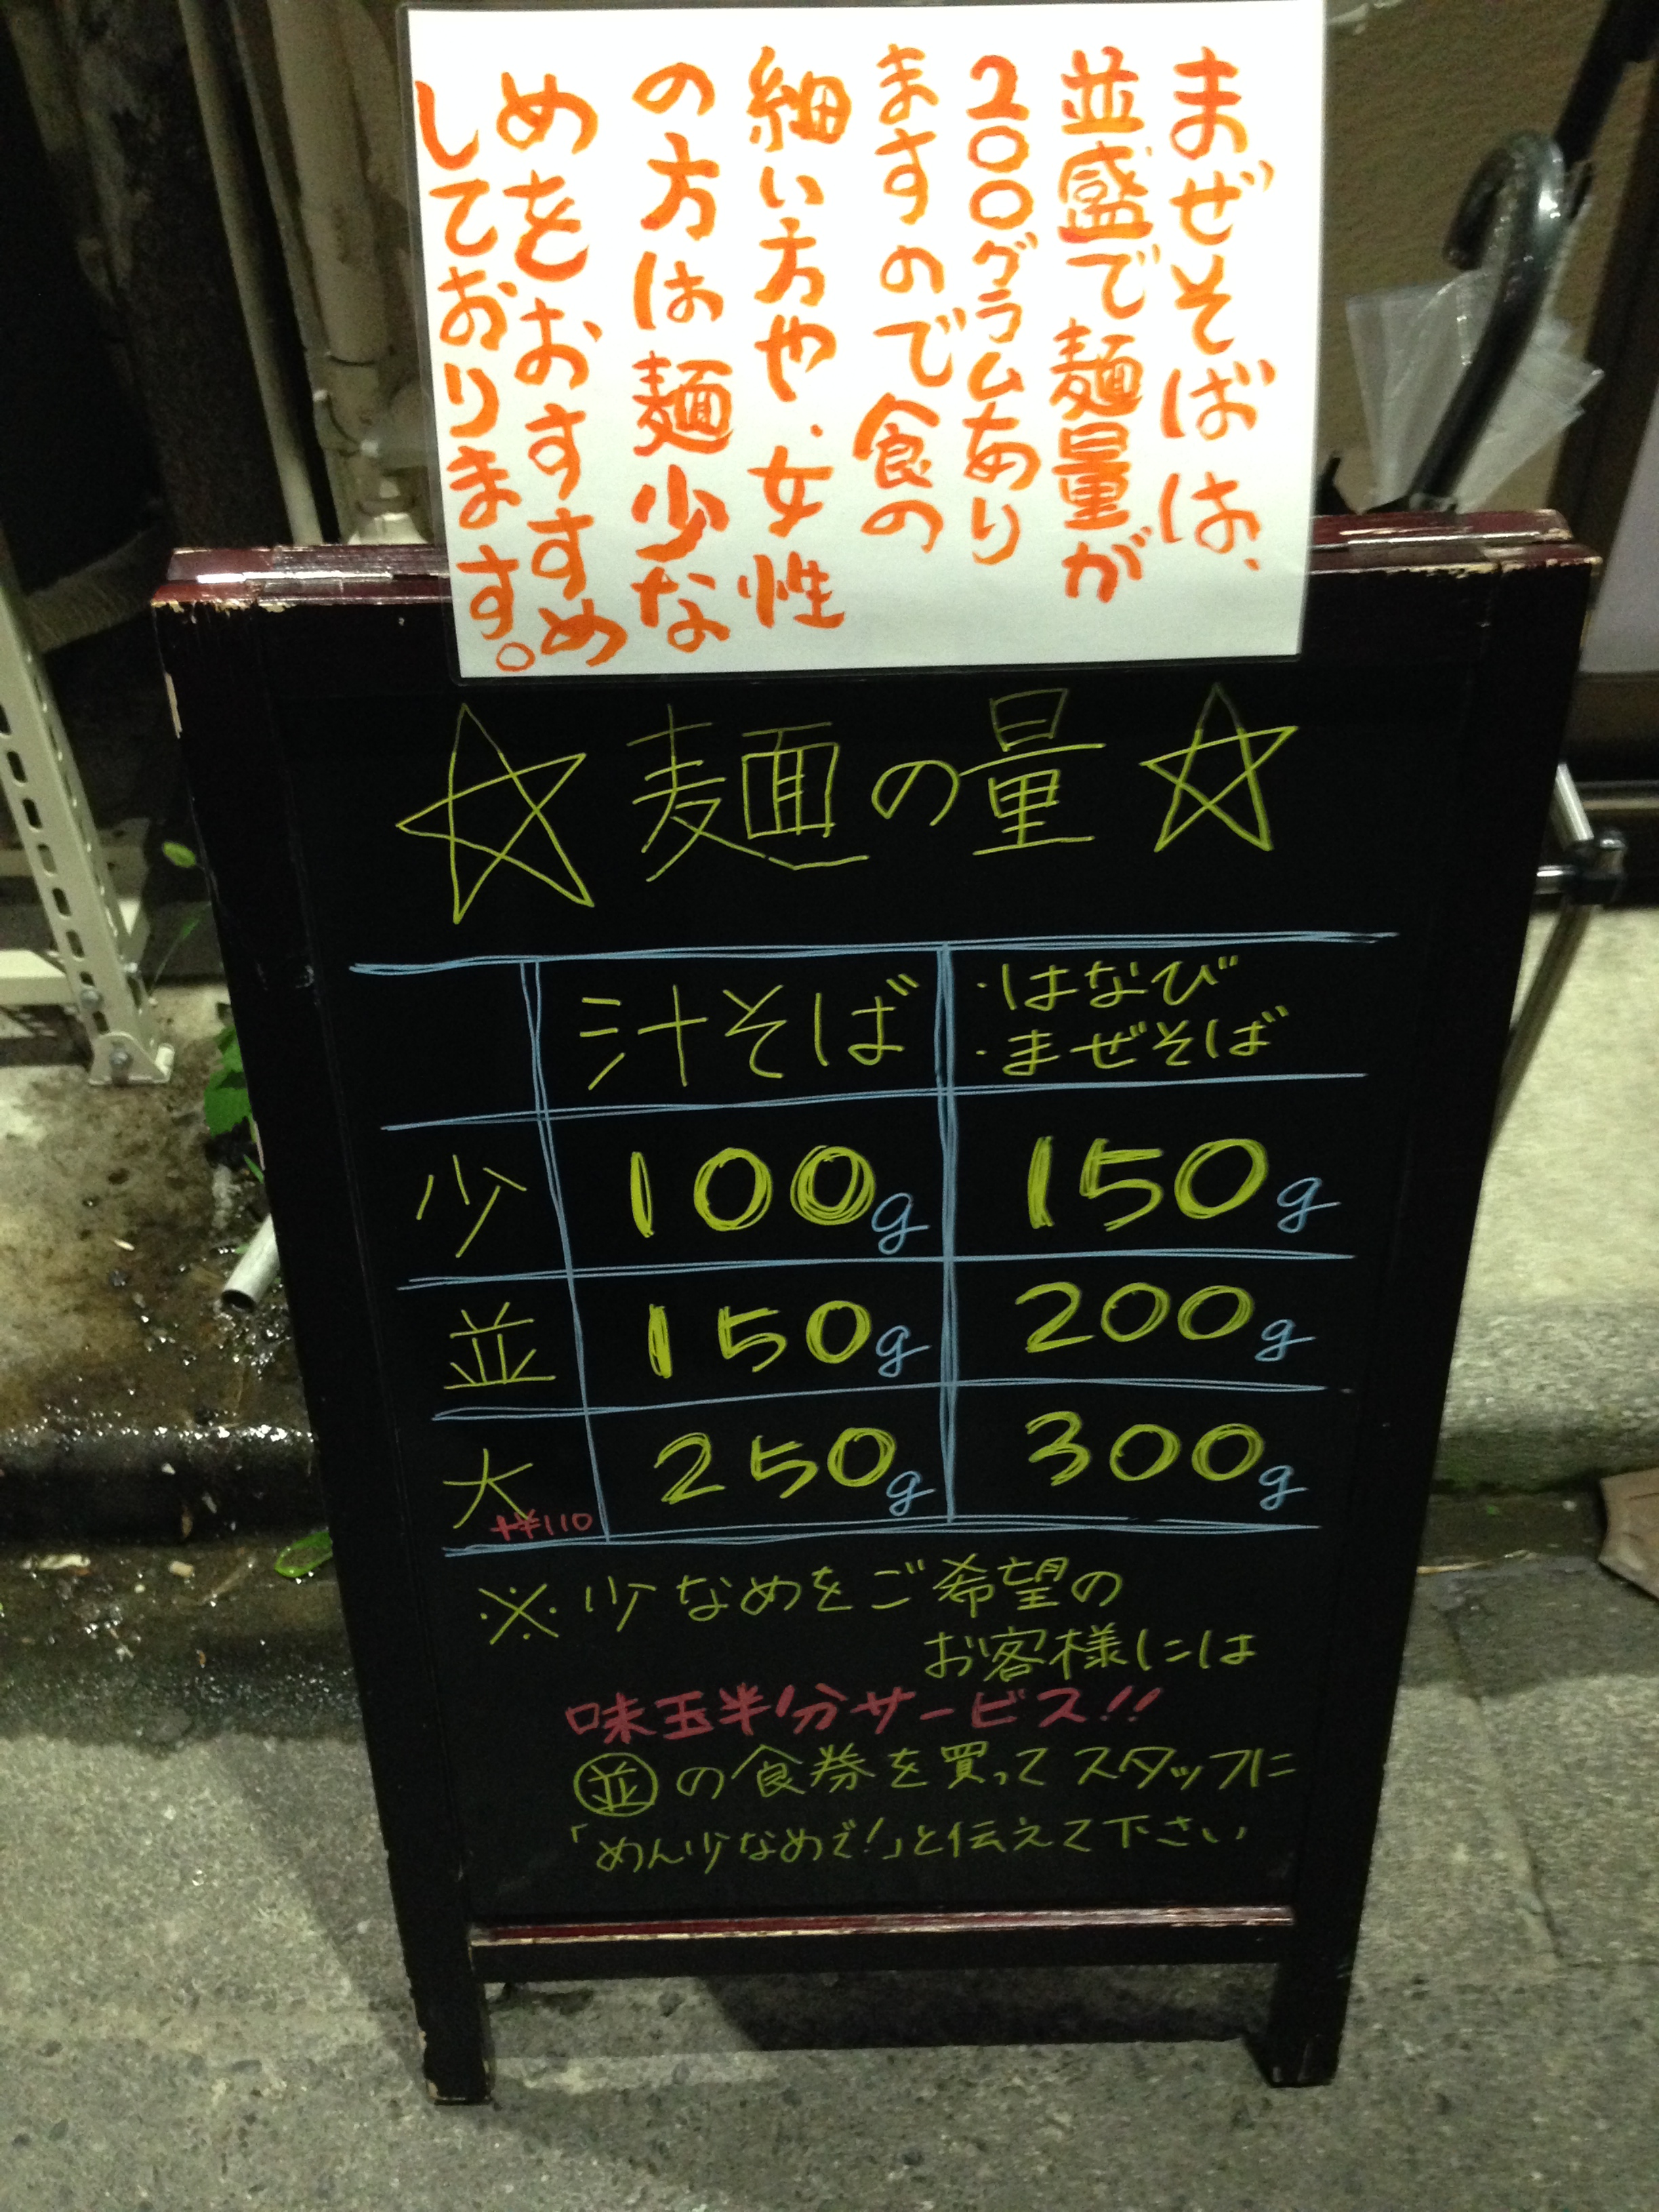 まぜそばは、
並盛で麺量が
200グラムあり
ますので食の
細い方や、女性
の方は麺少な
めをおすすめ
しております。
☆麺の量☆
汁そば ・はなび
・まぜそば
少 100g 150g
並 150g 200g
大 250g 300g
+¥110
※少なめをご希望の
お客様には
味玉半分サービス!!
並の食券を買ってスタッフに
「めん少なめで!」と伝えて下さい